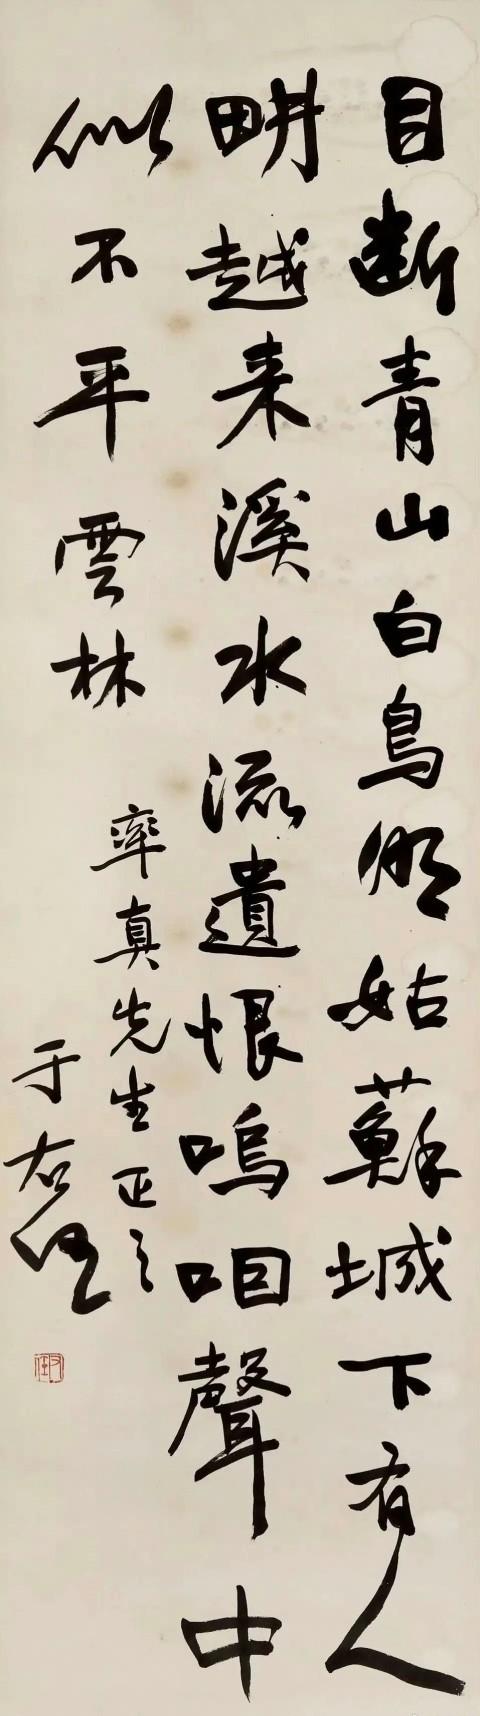 目断青山白鳥明姑蘇城下有人
畊越来溪水流遺恨嗚咽聲中
似不平雲林
率真先生正之
于右任
右任